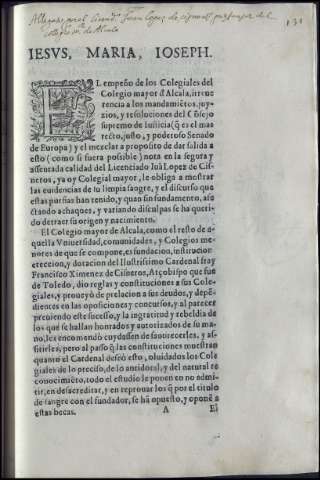 131
IESVS, MARIA, IOSEPH.
EL empeño de los Colegiales del
Colegio mayor d Alcala, irreue
rencia a los mandamiẽtos, juy-
zios, y resoluciones del Cõsejo
supremo de Iusticia (q̃ es el mas
recto, justo, y poderoso Senado
de Europa) y el mezclar a proposito de dar salida a
esto (como si fuera possible) nota en la segura y
assentada calidad del Licenciado Iuã Lopez de Cis-
neros, ya oy Colegial mayor, le obliga a mostrar
las euidencias de su limpia sangre, y el discurso que
estas puríias han tenido, y quan sin fundamento, aso
stando achaques, y variando disculpas se ha queri-
do detraer su origen y nacimiento.
El Colegio mayor de Alcala, como el resto de a-
quella Vniuersidad, comunidades, y Colegios me-
nores de que se compone, es fundacion, institucion
ereccion, y dotacion del Ilustrissimo Cardenal fray
Francisco Ximenez de Cisneros, Arçobispo que fue
de Toledo, dio reglas y constituciones a sus Cole-
giales, y proueyò de prelacion a sus deudos, y depẽ-
diences en las oposiciones y concursos, y al parecer
preuiendo este sucesso, y la ingratitud y rebeldia de
los que se hallan honrados y autorizados de su ma-
no, les encomendò cuydassen de fauorecerles, y as-
sistirles, pero al passo q̃ las constituciones muestran
quanto el Cardenal desseò esto, oluidados los Cole
giales de lo preciso, de lo antidoral, y del natural re
conocimiẽto, todo el estudio le ponen en no admi-
tir, en desacreditar, y en reprouar los q̃ por el titulo
de sangre con el fundador, se ha opuesto, y opone a
estas becas.
A El